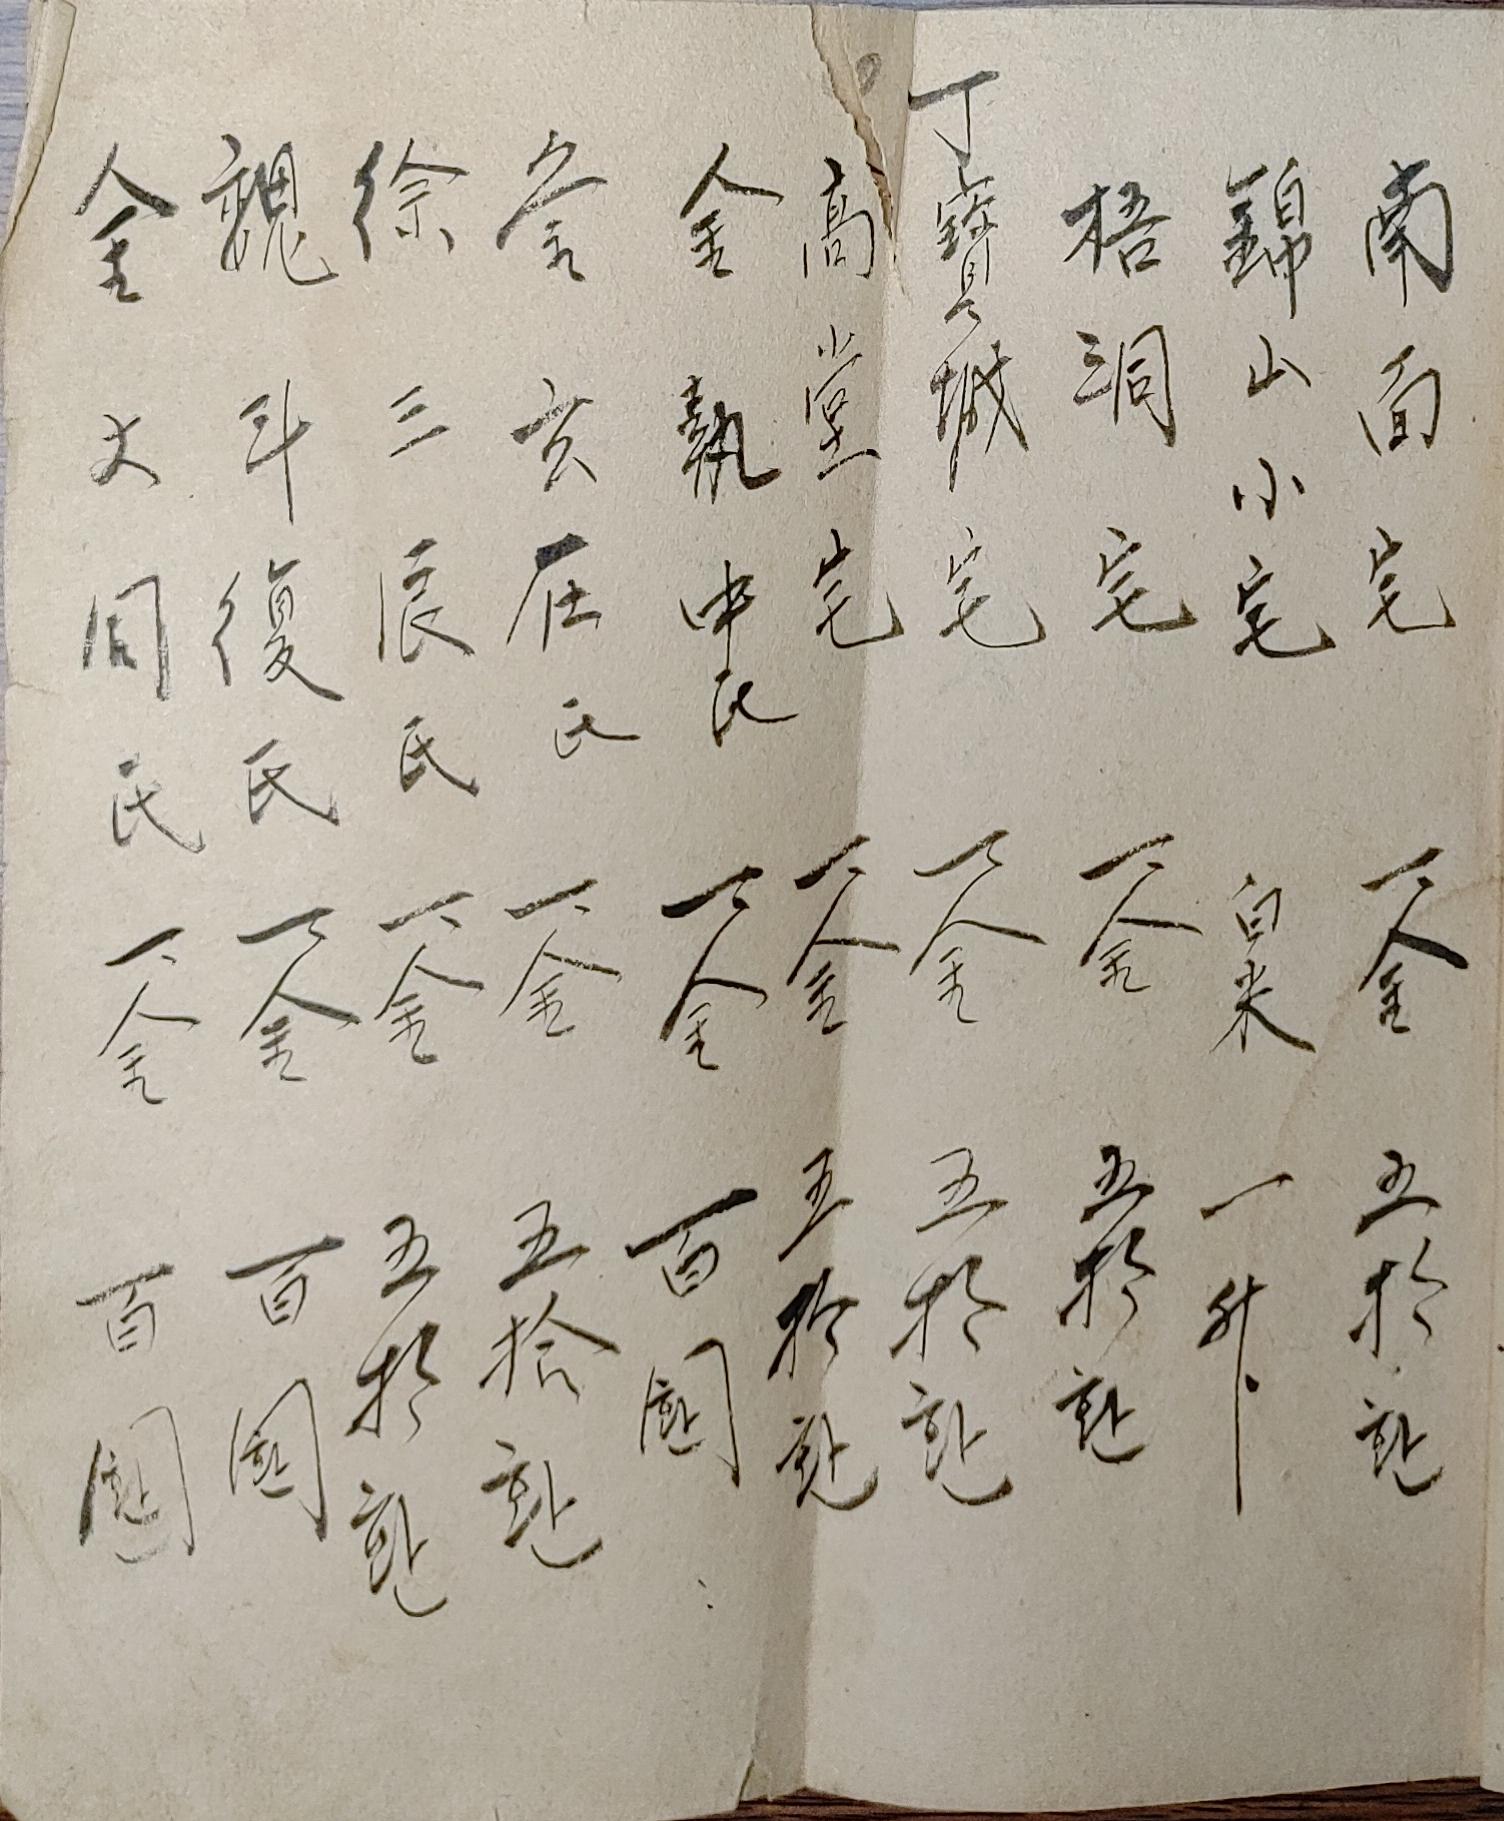 南面宅 一、金 五拾환
錦山小宅 白米 一升
梧洞宅 一、金 五拾환
丁寶城宅 一、金 五拾환
高堂宅 一、金 五拾환
金執中氏 一、金 百圜
金玄在氏 一、金 五拾환
徐三辰氏 一、金 五拾환
魏斗復氏 一、金 百圜
金文同氏 一、金 百圜